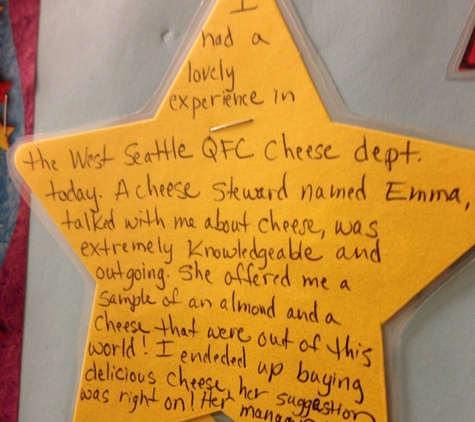 I
had a
lovely
experience in
the West Seattle QFC Cheese dept.
today. A cheese steward named Emma,
talked with me about cheese, was
extremely knowledgeable and
outgoing. She offered me a
sample of an almond and a
cheese that were out of this
world! I endeded up buying
delicious cheese, her suggestion
was right on! Her